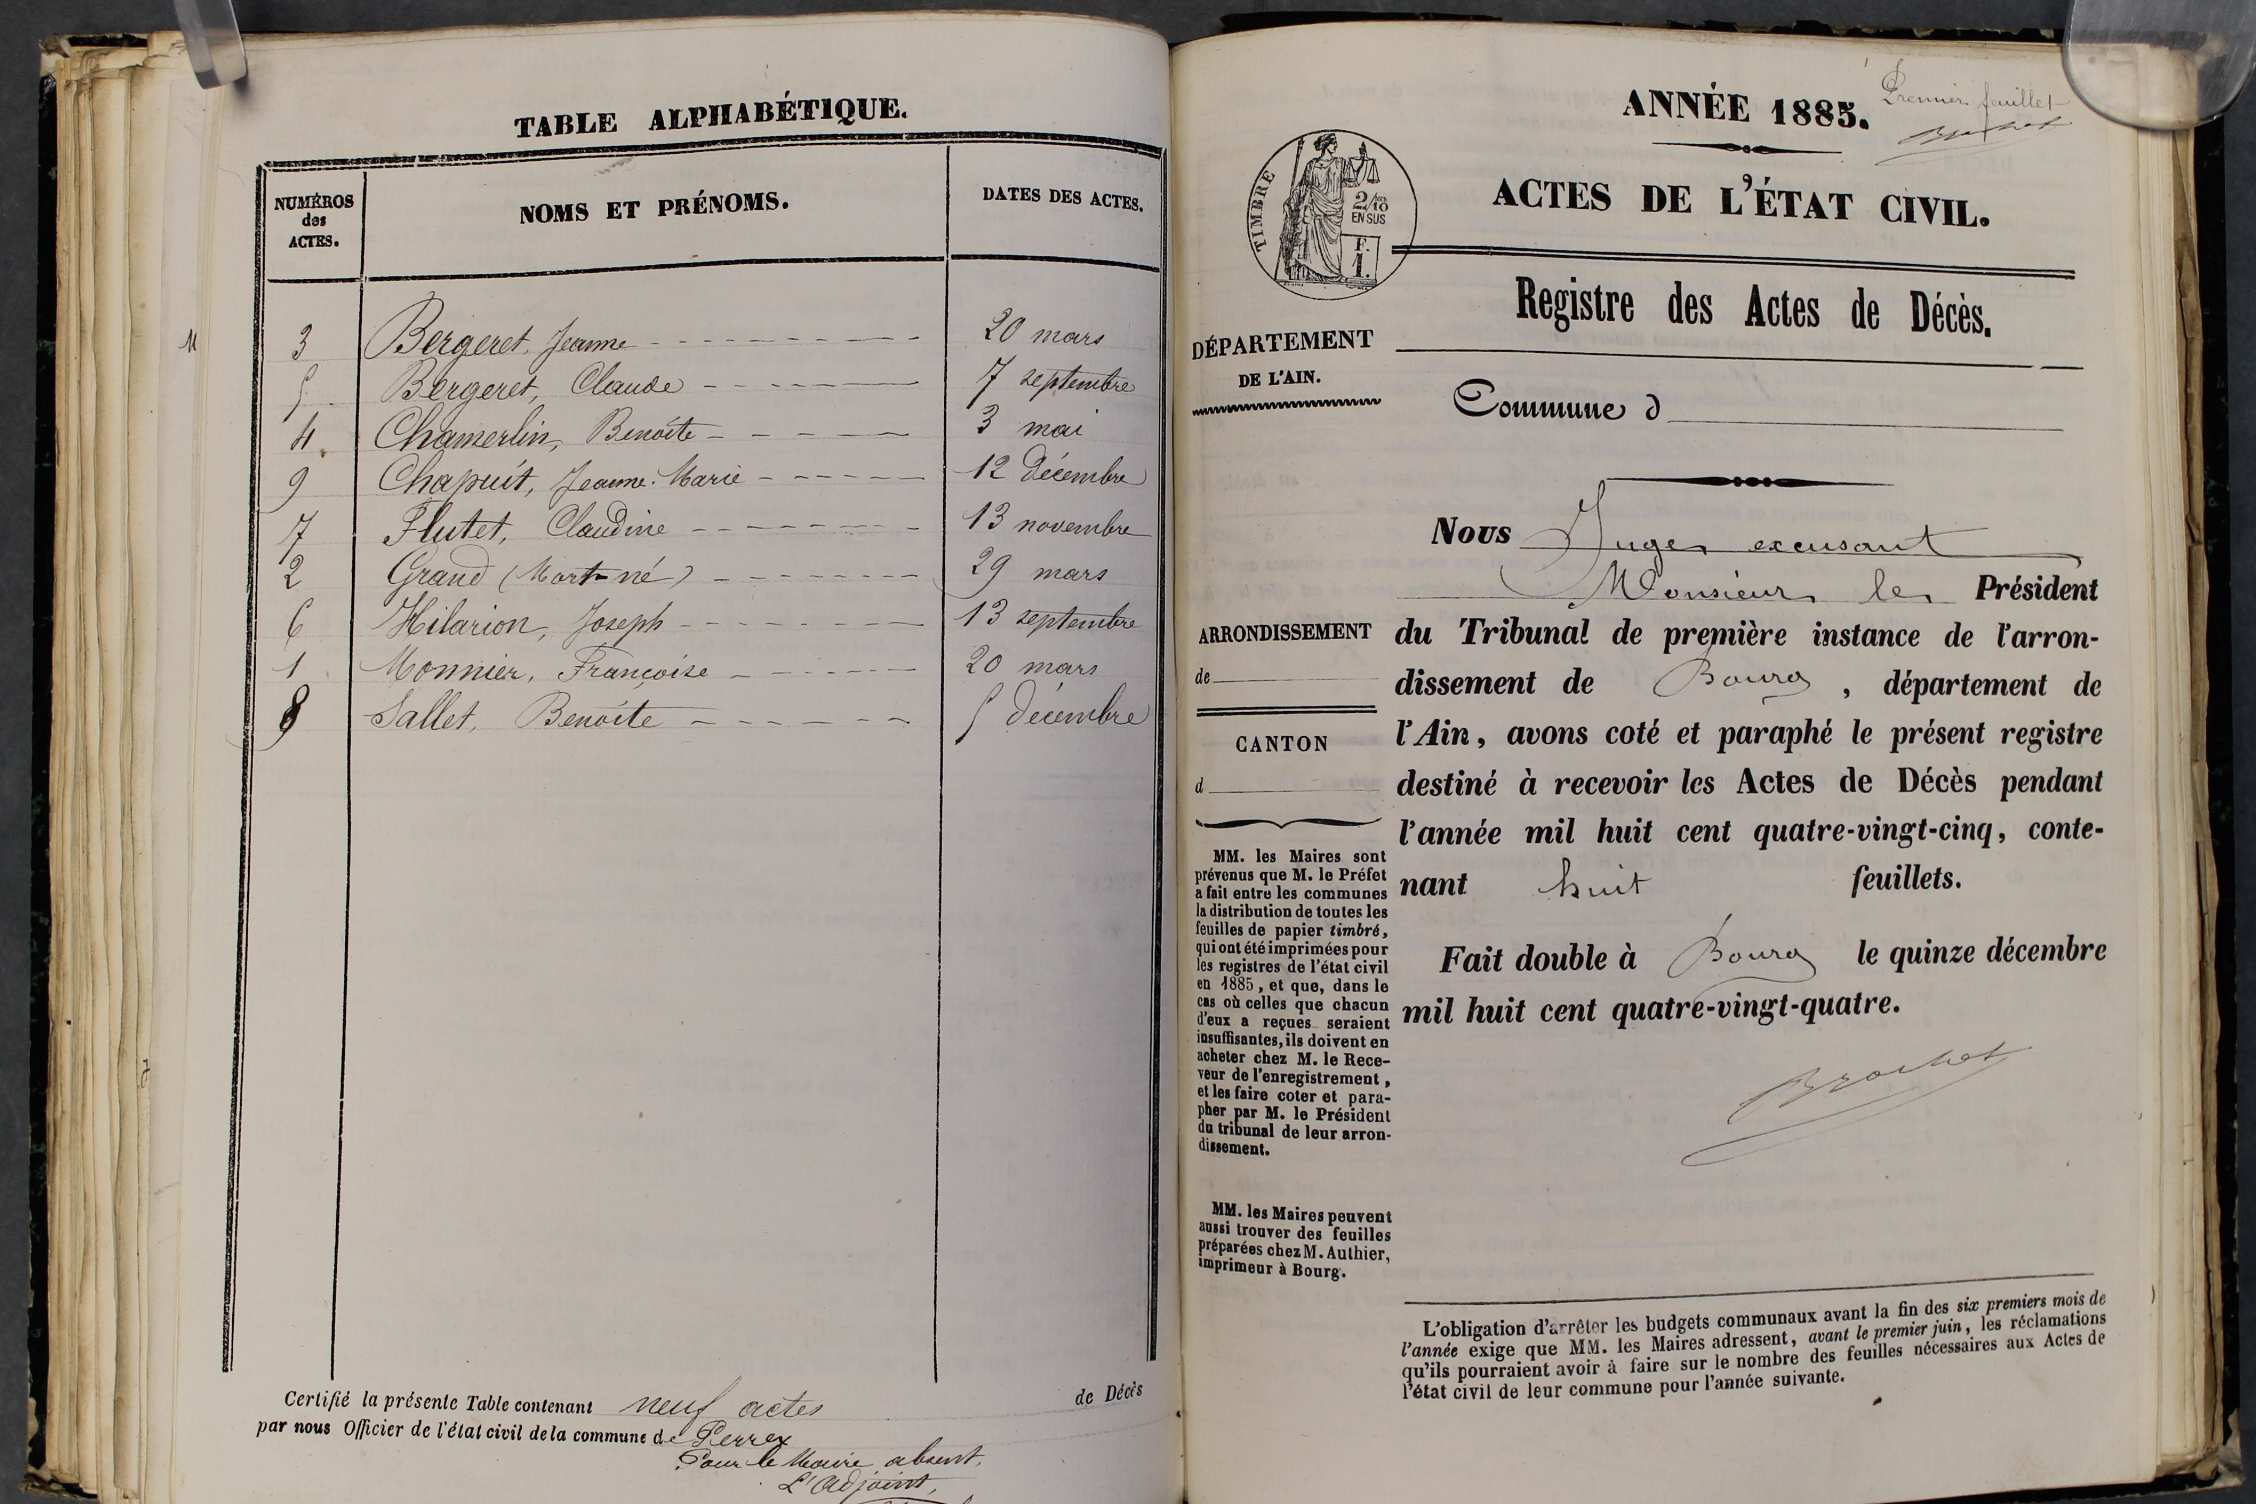 TABLE ALPHABÉTIQUE.
NUMÉROS
des
ACTES.
NOMS ET PRÉNOMS.
DATES DES ACTES.
3 Bergeret, Jeanne 20 mars
5 Bergeret, Claude 7 septembre
4 Chamerlin, Benoite 3 mai
9 Chapuit, Jeanne-Marie 12 décembre
7 Flutet, Claudine 13 novembre
2 Grand (Mort-né) 29 mars
6 Hilarion, Joseph 13 septembre
1 Monnier, Françoise 20 mars
8 Sallet, Benoite 5 décembre
Certifié la présente Table contenant neuf actes de Décès
par nous Officier de l'état civil de la commune de Perrex
Pour le Maire absent,
L'Adjoint,
Premier feuillet
Brochet
ANNÉE 1885.
ACTES DE L'ÉTAT CIVIL.
TIMBRE
2/10
EN SUS
F.
1.
Registre des Actes de Décès.
DÉPARTEMENT
DE L'AIN.
Commune d
ARRONDISSEMENT
de
CANTON
d
MM. les Maires sont
prévenus que M. le Préfet
a fait entre les communes
la distribution de toutes les
feuilles de papier timbré,
qui ont été imprimées pour
les registres de l'état civil
en 1885, et que, dans le
cas où celles que chacun
d'eux a reçues seraient
insuffisantes, ils doivent en
acheter chez M. le Rece-
veur de l'enregistrement,
et les faire coter et para-
pher par M. le Président
du tribunal de leur arron-
dissement.
MM. les Maires peuvent
aussi trouver des feuilles
préparées chez M. Authier,
imprimeur à Bourg.
Nous Juge excusant
Monsieur le Président
du Tribunal de première instance de l'arron-
dissement de Bourg, département de
l'Ain, avons coté et paraphé le présent registre
destiné à recevoir les Actes de Décès pendant
l'année mil huit cent quatre-vingt-cinq, conte-
nant huit feuillets.
Fait double à Bourg le quinze décembre
mil huit cent quatre-vingt-quatre.
Brochet
L'obligation d'arrêter les budgets communaux avant la fin des six premiers mois de
l'année exige que MM. les Maires adressent, avant le premier juin, les réclamations
qu'ils pourraient avoir à faire sur le nombre des feuilles nécessaires aux Actes de
l'état civil de leur commune pour l'année suivante.